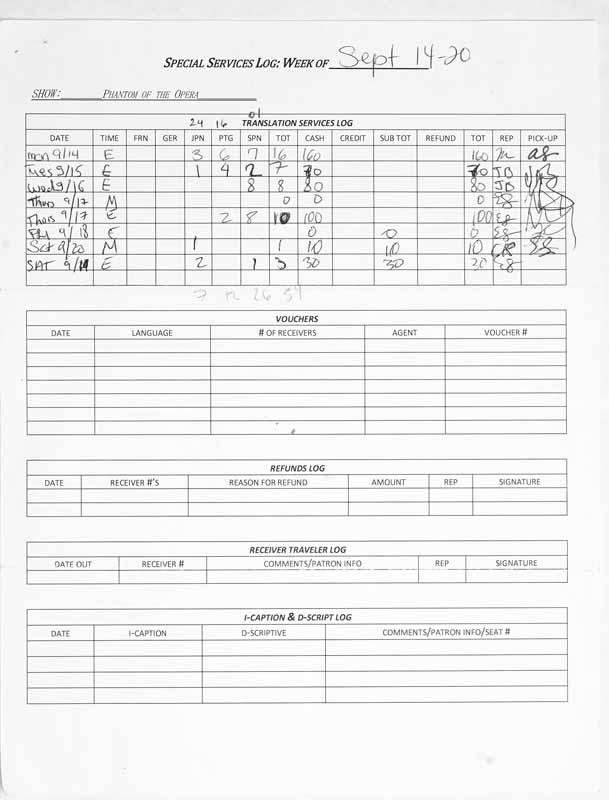 SPECIAL SERVICES LOG: WEEK OF Sept 14-20
SHOW: PHANTOM OF THE OPERA
24 16 01
TRANSLATION SERVICES LOG
DATE TIME FRN GER JPN PTG SPN TOT CASH CREDIT SUB TOT REFUND TOT REP PICK-UP
mon 9/14 E 3 6 7 16 160 160
Tues 9/15 E 1 4 2 7 70 70 JB
Wed 9/16 E 8 8 80 80 JB
Thurs 9/17 M 0 0 0 Eg
Thurs 9/17 E 2 8 10 100 100 Eg
Fri 9/18 E 0 0 0 Eg
Sat 9/20 M 1 1 10 10 10 CR
SAT 9/19 E 2 1 3 30 30 30 Eg
7 12 26 54
VOUCHERS
DATE LANGUAGE # OF RECEIVERS AGENT VOUCHER #
REFUNDS LOG
DATE RECEIVER #'S REASON FOR REFUND AMOUNT REP SIGNATURE
RECEIVER TRAVELER LOG
DATE OUT RECEIVER # COMMENTS/PATRON INFO REP SIGNATURE
I-CAPTION & D-SCRIPT LOG
DATE I-CAPTION D-SCRIPTIVE COMMENTS/PATRON INFO/SEAT #